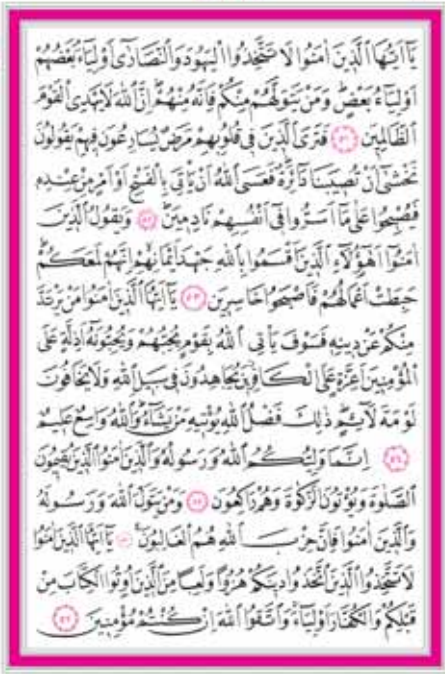 يَٓا اَيُّهَا الَّذٖينَ اٰمَنُوا لَا تَتَّخِذُوا الْيَهُودَ وَالنَّصَارٰٓى اَوْلِيَٓاءَۘ بَعْضُهُمْ
اَوْلِيَٓاءُ بَعْضٍؕ وَمَنْ يَتَوَلَّهُمْ مِنْكُمْ فَاِنَّهُ مِنْهُمْؕ اِنَّ اللّٰهَ لَا يَهْدِى الْقَوْمَ
الظَّالِمٖينَ ﴿٥١﴾ فَتَرَى الَّذٖينَ فٖى قُلُوبِهِمْ مَرَضٌ يُسَارِعُونَ فٖيهِمْ يَقُولُونَ
نَخْشٰٓى اَنْ تُصٖيبَنَا دَٓائِرَةٌؕ فَعَسَى اللّٰهُ اَنْ يَاْتِىَ بِالْفَتْحِ اَوْ اَمْرٍ مِنْ عِنْدِهٖ
فَيُصْبِحُوا عَلٰى مَٓا اَسَرُّوا فٖٓى اَنْفُسِهِمْ نَادِمٖينَؕ ﴿٥٢﴾ وَيَقُولُ الَّذٖينَ
اٰمَنُٓوا اَهٰٓؤُ۬لَٓاءِ الَّذٖينَ اَقْسَمُوا بِاللّٰهِ جَهْدَ اَيْمَانِهِمْۙ اِنَّهُمْ لَمَعَكُمْؕ
حَبِطَتْ اَعْمَالُهُمْ فَاَصْبَحُوا خَاسِرٖينَ ﴿٥٣﴾ يَٓا اَيُّهَا الَّذٖينَ اٰمَنُوا مَنْ يَرْتَدَّ
مِنْكُمْ عَنْ دٖينِهٖ فَسَوْفَ يَاْتِى اللّٰهُ بِقَوْمٍ يُحِبُّهُمْ وَيُحِبُّونَهُٓ اَذِلَّةٍ عَلَى
الْمُؤْمِنٖينَ اَعِزَّةٍ عَلَى الْكَافِرٖينَؗ يُجَاهِدُونَ فٖى سَبٖيلِ اللّٰهِ وَلَا يَخَافُونَ
لَوْمَةَ لَٓائِمٍؕ ذٰلِكَ فَضْلُ اللّٰهِ يُؤْتٖيهِ مَنْ يَشَٓاءُؕ وَاللّٰهُ وَاسِعٌ عَلٖيمٌ
﴿٥٤﴾ اِنَّمَا وَلِيُّكُمُ اللّٰهُ وَرَسُولُهُ وَالَّذٖينَ اٰمَنُوا الَّذٖينَ يُقٖيمُونَ
الصَّلٰوةَ وَيُؤْتُونَ الزَّكٰوةَ وَهُمْ رَاكِعُونَ ﴿٥٥﴾ وَمَنْ يَتَوَلَّ اللّٰهَ وَرَسُولَهُ
وَالَّذٖينَ اٰمَنُوا فَاِنَّ حِزْبَ اللّٰهِ هُمُ الْغَالِبُونَ ﴿٥٦﴾ يَٓا اَيُّهَا الَّذٖينَ اٰمَنُوا
لَا تَتَّخِذُوا الَّذٖينَ اتَّخَذُوا دٖينَكُمْ هُزُوًا وَلَعِبًا مِنَ الَّذٖينَ اُو۫تُوا الْكِتَابَ مِنْ
قَبْلِكُمْ وَالْكُفَّارَ اَوْلِيَٓاءَۚ وَاتَّقُوا اللّٰهَ اِنْ كُنْتُمْ مُؤْمِنٖينَ ﴿٥٧﴾